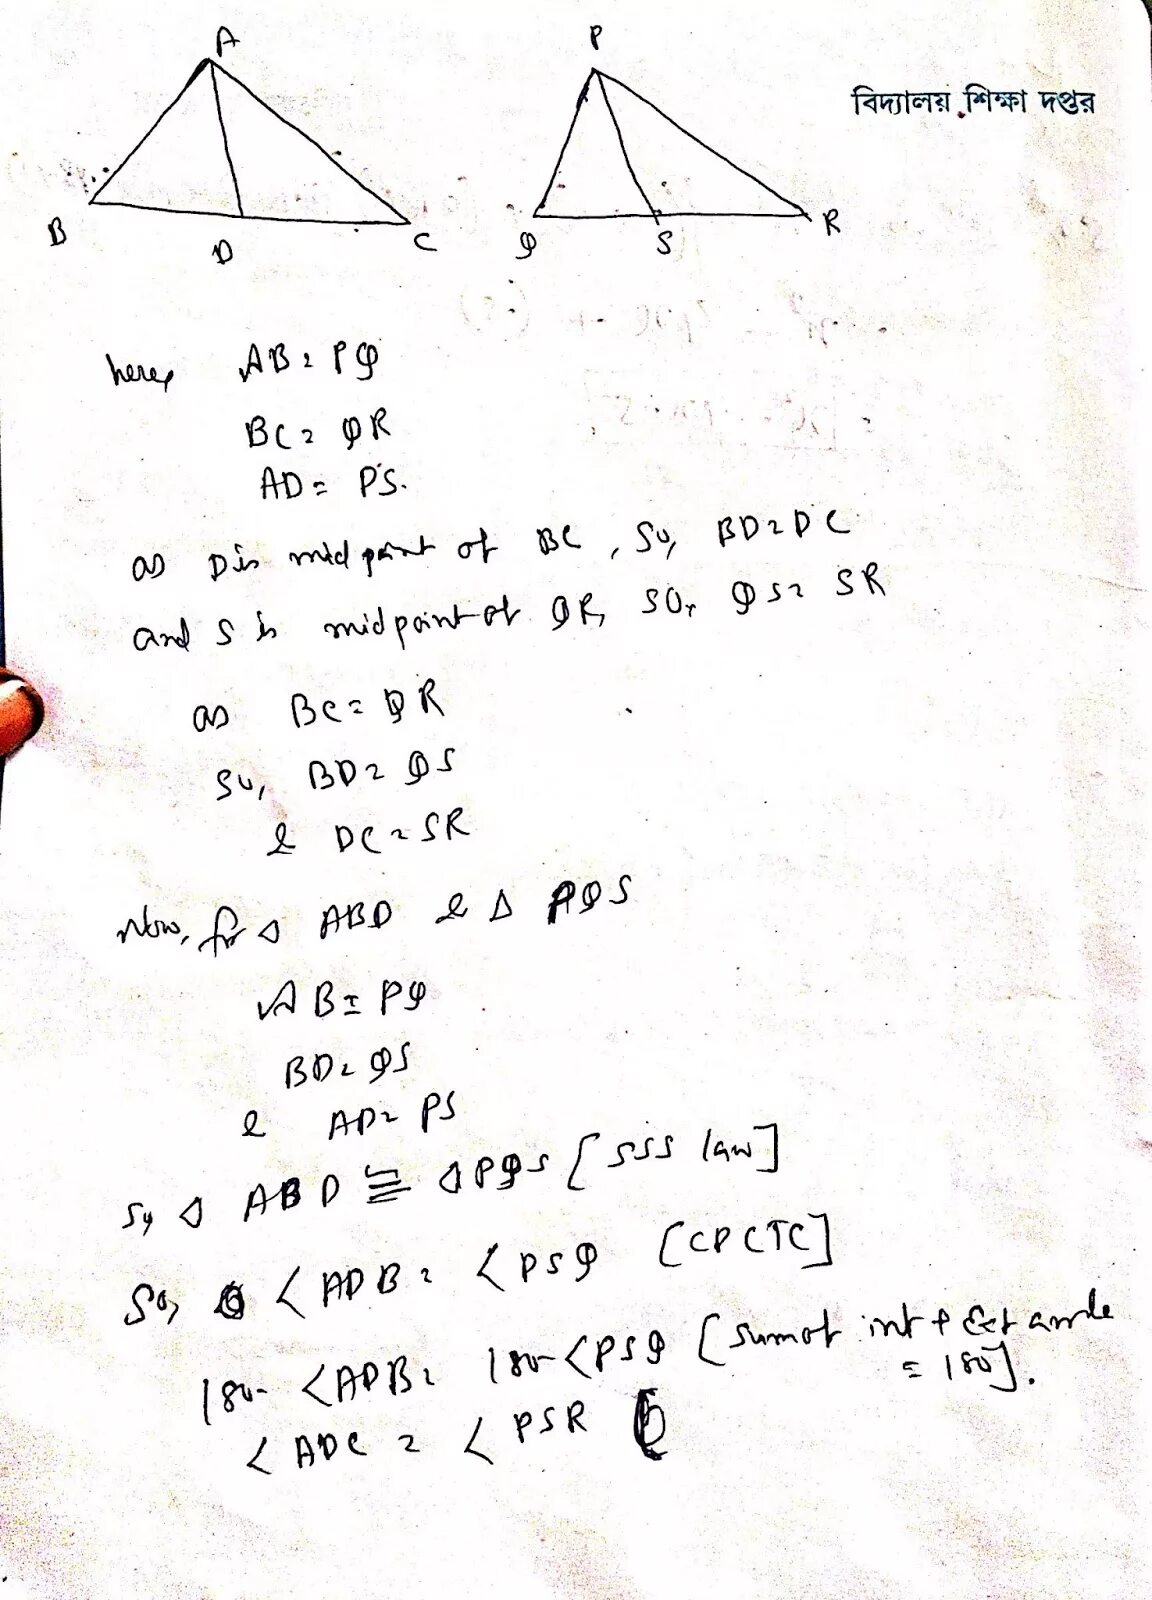 A
P
বিদ্যালয় শিক্ষা দপ্তর
B
D
C
Q
S
R
here, AB = PQ
BC = QR
AD = PS.
as D is midpoint of BC, So, BD = DC
and S is midpoint of QR, so, QS = SR
as BC = QR
so, BD = QS
& DC = SR
Now, for △ ABD & △ PQS
AB = PQ
BD = QS
& AD = PS
So, △ ABD ≅ △PQS [SSS law]
So, < ADB = < PSQ [CPCTC]
180- <ADB = 180- <PSQ [sum of int + Ext angle
= 180].
< ADC = < PSR